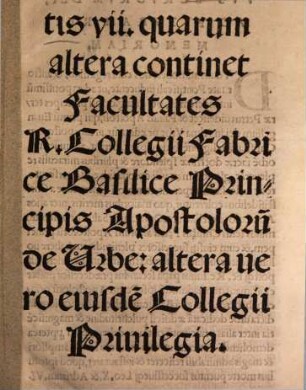 tis vii. quarum
altera continet
Facultates
R. Collegii Fabri
ce Basilice Prin-
cipis Apostolorũ
de Urbe: altera ue
ro eiusdẽ Collegii
Priuilegia.